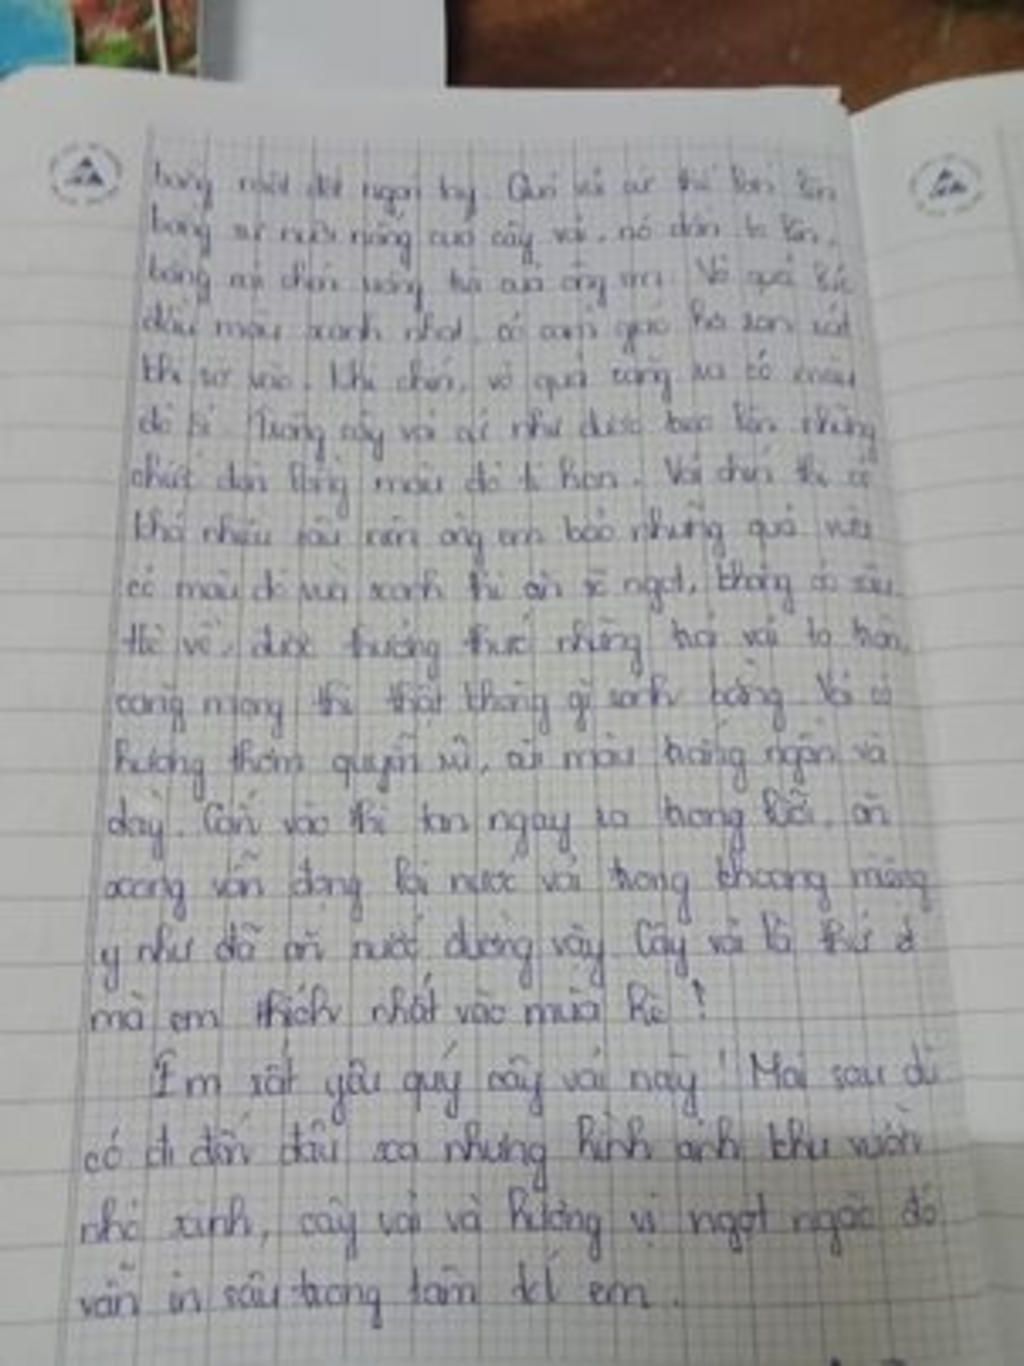 bằng một đốt ngón tay. Quả vải cứ thế lớn lên
bằng sự nuôi nấng của cây vải, nó dần to lên,
bằng cái chén uống trà của ông em. Vỏ quả lúc
đầu màu xanh nhạt, có cảm giác hơi ran rát
khi sờ vào. Khi chín, vỏ quả căng ra có màu
đỏ Trông cây vải cứ như được treo lên những
chiếc đèn lồng màu đỏ tí hon. Vải chín thì có
khá nhiều sâu nên ông em bảo những quả vừa
có màu đỏ vừa xanh thì ăn sẽ ngọt, không có sâu.
Hè về, được thưởng thức những trái vải to tròn,
căng mọng thì thật không gì sánh bằng. Vải có
hương thơm quyến rũ, cùi màu trắng ngần và
dày. Cắn vào thì tan ngay ra trong lưỡi, ăn
xong vẫn đọng lại nước vải trong khoang miệng
y như đã ăn nước đường vậy. Cây vải là thứ
mà em thích nhất vào mùa hè!
Em rất yêu quý cây vải này! Mai sau dù
có đi đến đâu xa nhưng hình ảnh khu vườn
nhỏ xinh, cây vải và hương vị ngọt ngào đó
vẫn in sâu trong tâm trí em.